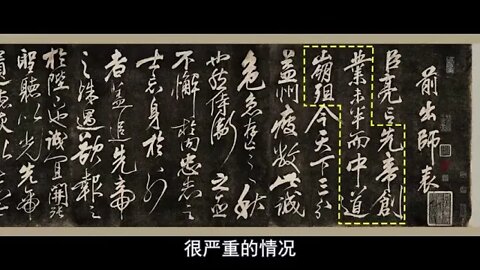 前出師表
臣亮言先帝創
業未半而中道
崩殂今天下三分
益州疲敝此誠
危急存亡之秋
也然侍衛之臣
不懈於內忠志之
士忘身於外
者蓋追先帝
之殊遇欲報之
於陛下也誠宜開張
聖聽以光先帝
很严重的情况